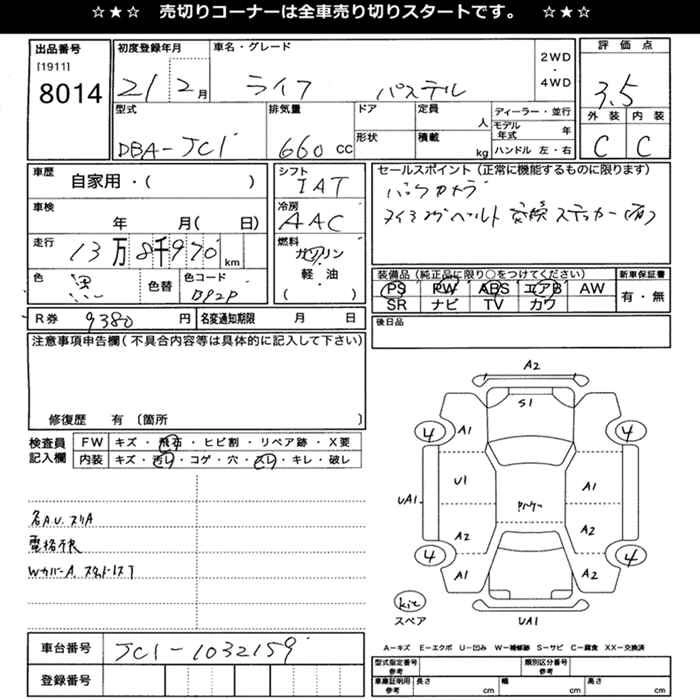 ☆★☆ 売切りコーナーは全車売り切りスタートです。 ☆★☆
出品番号
[1911]
8014
初度登録年月
21 2月
車名・グレード
ライフ パステル
2WD
・
4WD
評価点
3.5
外装 内装
C C
型式
DBA-JC1
排気量
660 CC
ドア
形状
定員
人
積載
kg
ディーラー・並行
モデル年式 年
ハンドル 左・右
車歴
自家用・( )
車検
年 月( 日)
走行
13万8千970km
色
黒
色替
色コード
B92P
シフト
IAT
冷房
AAC
燃料
ガソリン
・
軽・油
( )
セールスポイント (正常に機能するものに限ります)
バックカメラ
タイミングベルト交換ステッカー(有)
装備品 (純正品に限り○をつけてください)
PS PW ABS エアB AW
SR ナビ TV カワ
新車保証書
有・無
R券 9380 円
名変通知期限 月 日
後日品
注意事項申告欄(不具合内容等は具体的に記入して下さい)
修復歴 有 〔箇所 〕
検査員
記入欄
FW キズ・飛石・ヒビ割・リペア跡・X要
内装 キズ・汚レ・コゲ・穴・スレ・キレ・破レ
各AU.スリA
電格不良
WカバーA.
A2
S1
4
4
A1
U1
A1
UA1.
A2
A2
4
4
A1
A2
kit
スペア
UA1
A-キズ E-エクボ U-凹み W-補修跡 S-サビ C-腐食 XX-交換済
車台番号
JC1-1032159
登録番号
型式指定番号
参考
類別区分番号
参考
車庫証明用
参考
長さ cm
幅 cm
高さ cm